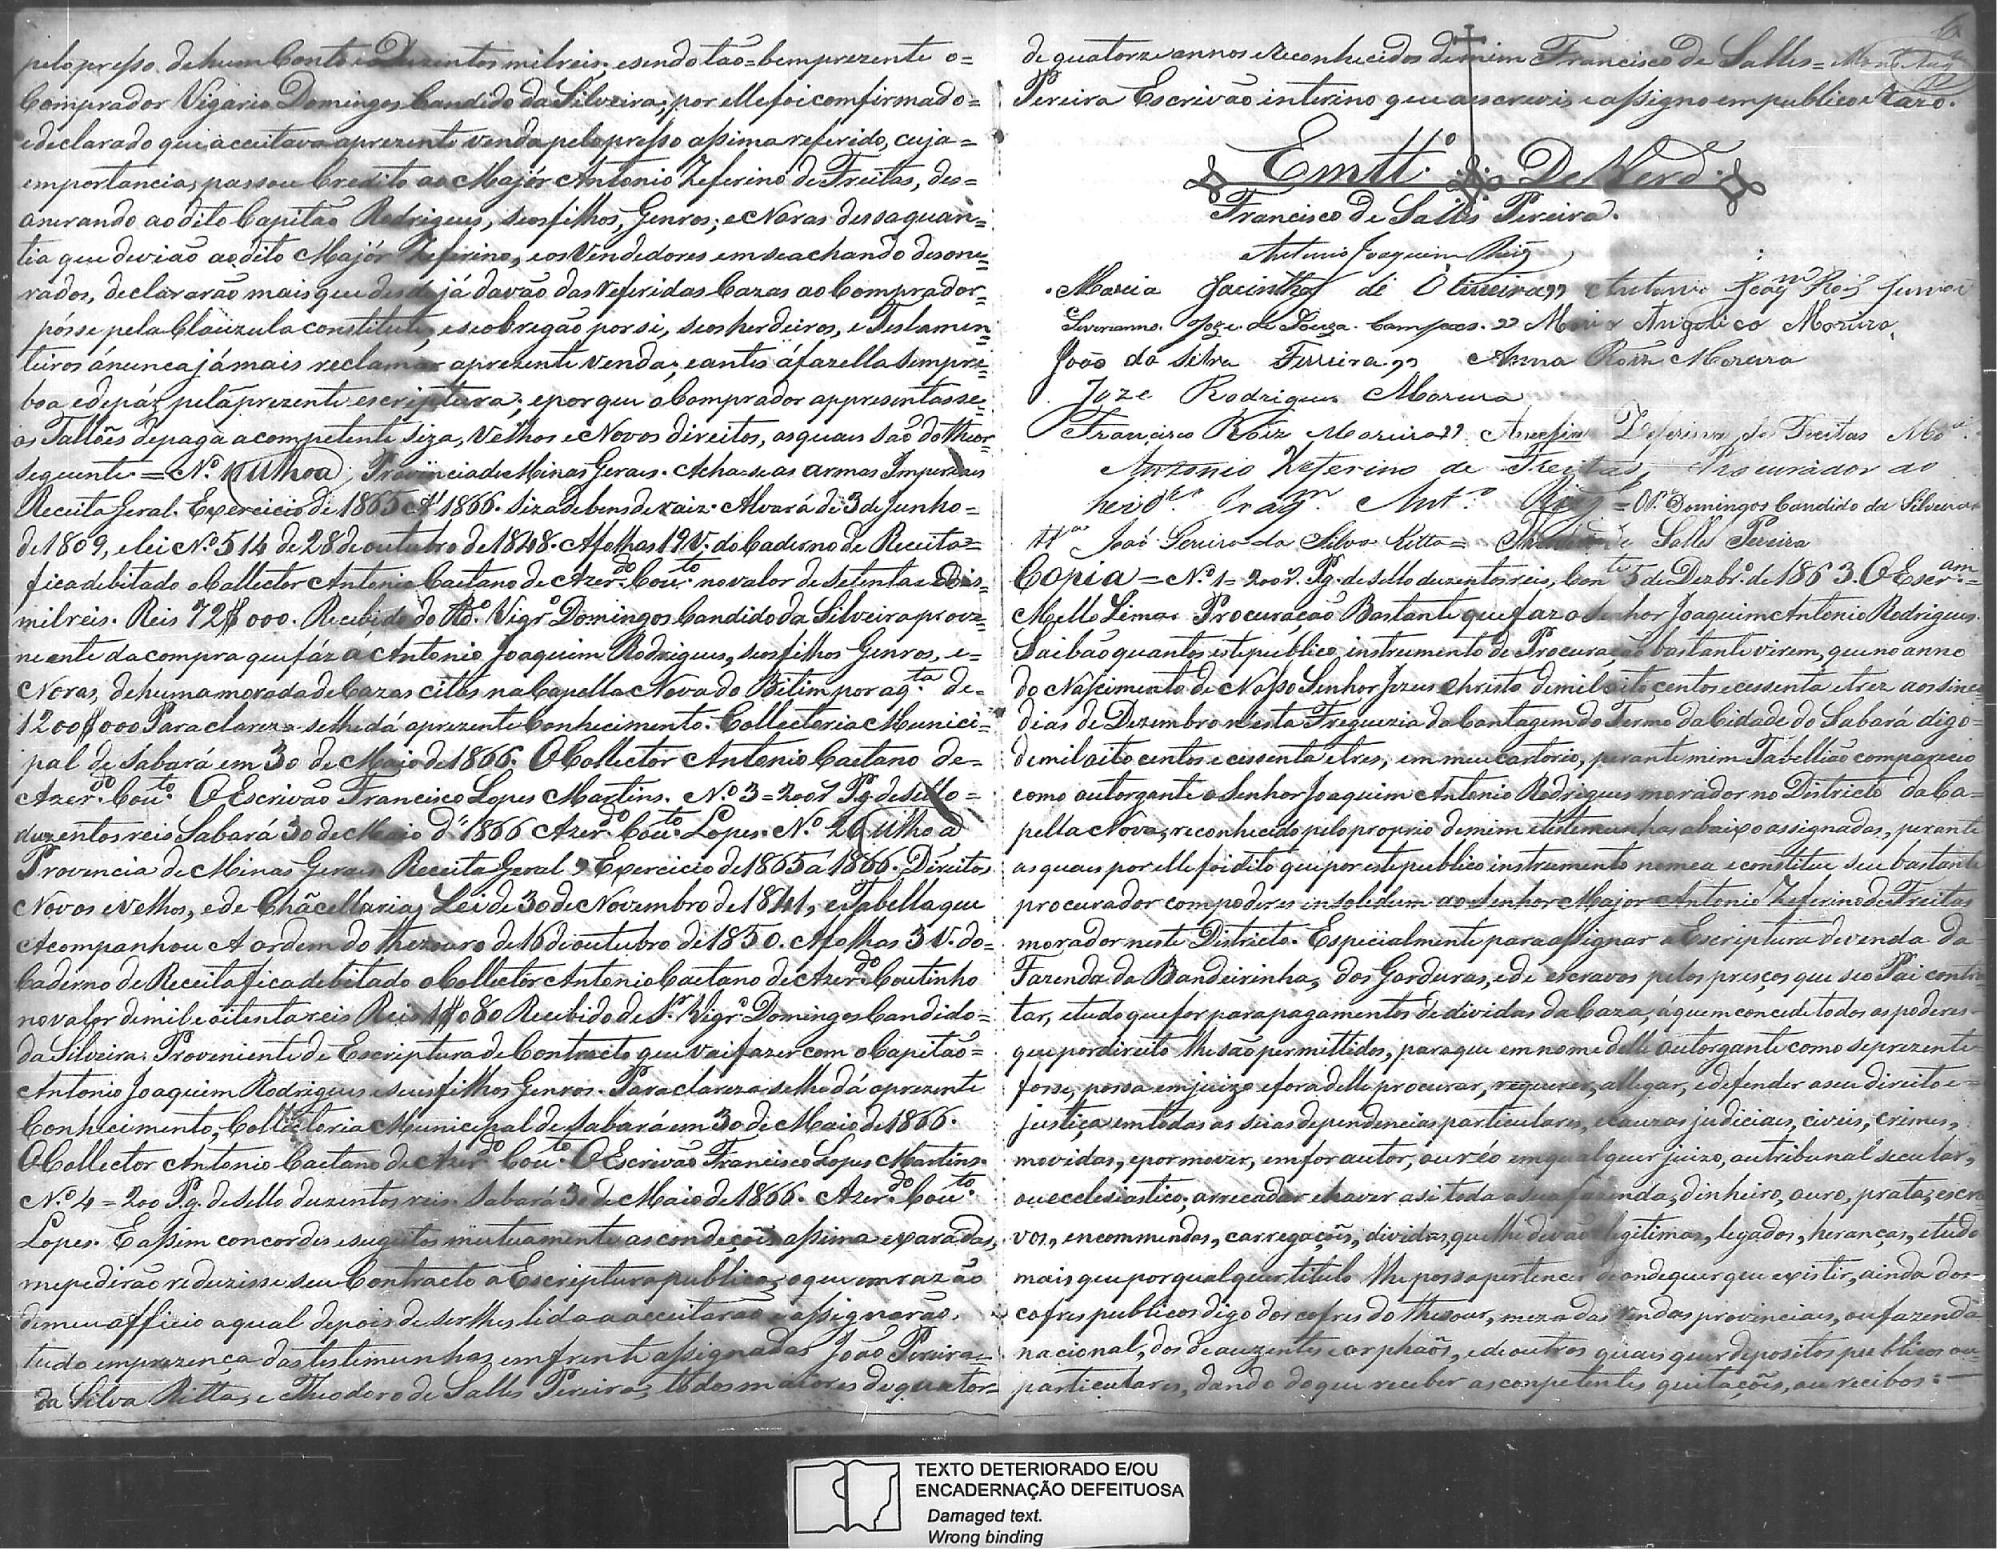 pelo presso de hum Conto e Duzentos mil reis; esendo tão=bem prezente o=
Comprador Vigario Domingos Candido da Silveira, por elle foi comfirmado=
e declarado que acceitava aprezente venda pelo presso assima referido, cuja=
emportancia, passou Credito ao Majór Antonio Zeferino de Freitas, des=
onerando ao dito Capitão Rodrigues, seos filhos, Genros, e Noras dessa quan=
tia que devião ao dito Majór Zeferino, e os Vendedores em se achando desone=
rados, declararão mais que desde já davão das referidas Cazas ao Comprador=
pósse pela Clauzula constituti, e se obregão por si, seos herdeiros, e Testamen=
teiros á nunca já mais reclamar aprezente venda; e antes á fazella sempre=
boa e de páz pela prezente escriptura; e por que o Comprador appresentasse=
os Tallões de paga a competente siza, Velhos e Novos direitos, as quais são do theor
seguente = N.º 1 Provinciade Minas Gerais. Acha-se as armas Imperiaes
Receita Geral. Exercicio de 1865 A' 1866. Siza de bens de raiz. Alvará de 3 de Junho=
de 1809, e lei N.º 514 de 28 de outubro de 1848. A folhas 19 V. do Caderno de Receita=
fica debitado o Collector Antonio Caetano de Azer.do Cou.to no valor de setenta e dois=
mil reis. Reis 72$000. Recibido do Rd.º Vigr.º Domingos Candido da Silveira prove=
neente da compra que fáz a Antonio Joaquim Rodrigues, seos filhos Genros, e=
Noras, de huma morada de Cazas citas na Capella Nova do Bitim por aq.ta de=
1200$000 Para clareza se lhe dá aprezente Conhecimento. Collectoria Munici=
pal de Sabará em 30 de Maio de 1866. O Collector Antonio Caetano de=
Azer.do Cou.to O Escrivão Francisco Lopes Martins. N.º 3=200 Pg. de sello=
duzentos reis Sabará 30 de Maio d' 1866 Azer.do Cou.to Lopes. N.º 26
Provencia de Minas Gerais Receita Geral Exercicio de 1865 á 1866. Direitos
Novos e Velhos, e de Chãcellaria, Lei de 30 de Novembro de 1841, e Tabella que
Acompanhou A ordem do thezouro de 16 de outubro de 1850. A folhas 3 V. do=
Caderno de Receita fica debitado o Collector Antonio Caetano de Azer.do Coutinho
no valor de mil e oitenta reis Reis 1$080 Recibido de S.r Vigr.º Domingos Candido=
da Silveira. Proveniente de Escriptura de Contracto que vai fazer com o Capitão=
Antonio Joaquim Rodrigues e seus filhos Genros. Para clareza se lhe dá aprezente
Conhecimento, Collectoria Municipal de Sabará em 30 de Maio de 1866.
O Collector Antonio Caetano de Azer.do Cou.to O Escrivão Francisco Lopes Martins.
N.º 4=200 Pg. de sello duzentos reis. Sabará 30 de Maio de 1866. Azer.do Cou.to
Lopes. E assim concordes e sugeitos mutuamente as condeçoẽs assima exparadas,
me pedirão reduzisse seu Contracto a Escriptura publica, o que em razão
de meu officio a qual depois de ser lhes lida a acceitarão e assignarão,
tudo em prezença das testimunhas em frente assignadas João Pereira=
da Silva Ritta, e Theodoro de Salles Pereira, todos maiores de quator=
6
de quatorze annos e reconhecidos de mim Francisco de Salles=
Pereira Escrivão interino que a escrevi e assigno em publico e razo.
Em tt.º De Verd.e
Francisco de Salles Pereira.
Antonio Joaquim Roiz
Maria Jacintha de Oliveira Antonio Joaq.m Roiz Junior
Severianno Joze de Souza Campos. Maria Angelica Moreira
João da Silva Ferreira. Anna Roiz Moreira
Joze Rodrigues Moreira
Francisco Roiz Moreira Zeferina de Freitas
Antonio Zeferino de Freitas, Procurador do
herd.ro Ant.º Roiz = O V.º Domingos Candido da Silveira
T.as João Pereira da Silva Ritta= Theodoro de Salles Pereira
Copia=N.º 1=200 Pg. de sello duzentos reis, Con.te 5 de Dezbr.º de 1863. O Escr.am=
Mello Lima. Procuração Bastante que faz o Senhor Joaquim Antonio Rodrigues.
Saibão quantos este publico instrumento de Procuração bastante virem, que no anno
do Nascimento de Nosso Senhor Jezus Christo de mil oito centos e cessenta e trez aos sinco
dias de Dezembro nesta Freguezia da Contagem do Termo da Cidade do Sabará digo=
de mil oito centos e cessenta e tres, em meu cartorio, perante mim Tabellião compareceo
como outorgante o Senhor Joaquim Antonio Rodrigues morador no Districto da Ca=
pella Nova, reconhecido pelo proprio de mim e testemunhas abaixo assignadas, perante
as quaes por elle foi dito que por este publico instrumento nomea e constitue seu bastante
procurador com poderes insolidum ao Senhor Major Antonio Zeferino de Freitas
morador neste Districto. Especialmente para assignar a Escriptura de venda da=
Fazenda da Bandeirinha, dos Gorduras, e de escravos pelos preços que seo Pai contra=
tar, e tudo que for para pagamentos de dividas da Caza, á quem concede todos os poderes=
que por direito lhe são permittidos, para que em nome delle outorgante como se prezente
fosse, possa em juizo e fora delle procurar, requerer, allegar, e defender a seu direito e=
justiça em todas as suas dependencias particulares, e cauzas judiciais, civeis, crimes,
movidas, e por mover, em for autor, ou réo em qual quer juizo, ou tribunal secular,
ou ecclesiastico; arrecadar e haver a si toda a sua fazenda, dinheiro, ouro, prata, escra=
vos, encommendas, carregações, dividas, que lhe devão legitimas, legados, heranças, e tudo
mais que por qualquer titulo lhe possa pertencer de onde quer que existir, ainda dos=
cofres publicos digo dos cofres do thesour, meza das rendas provinciais, ou fazenda
nacional, dos de auzentes e orphãos, e de outros quaes quer depositos publicos ou=
particulares, dando do que receber as conpetentes quitações, ou recibos:—
TEXTO DETERIORADO E/OU
ENCADERNAÇÃO DEFEITUOSA
Damaged text.
Wrong binding